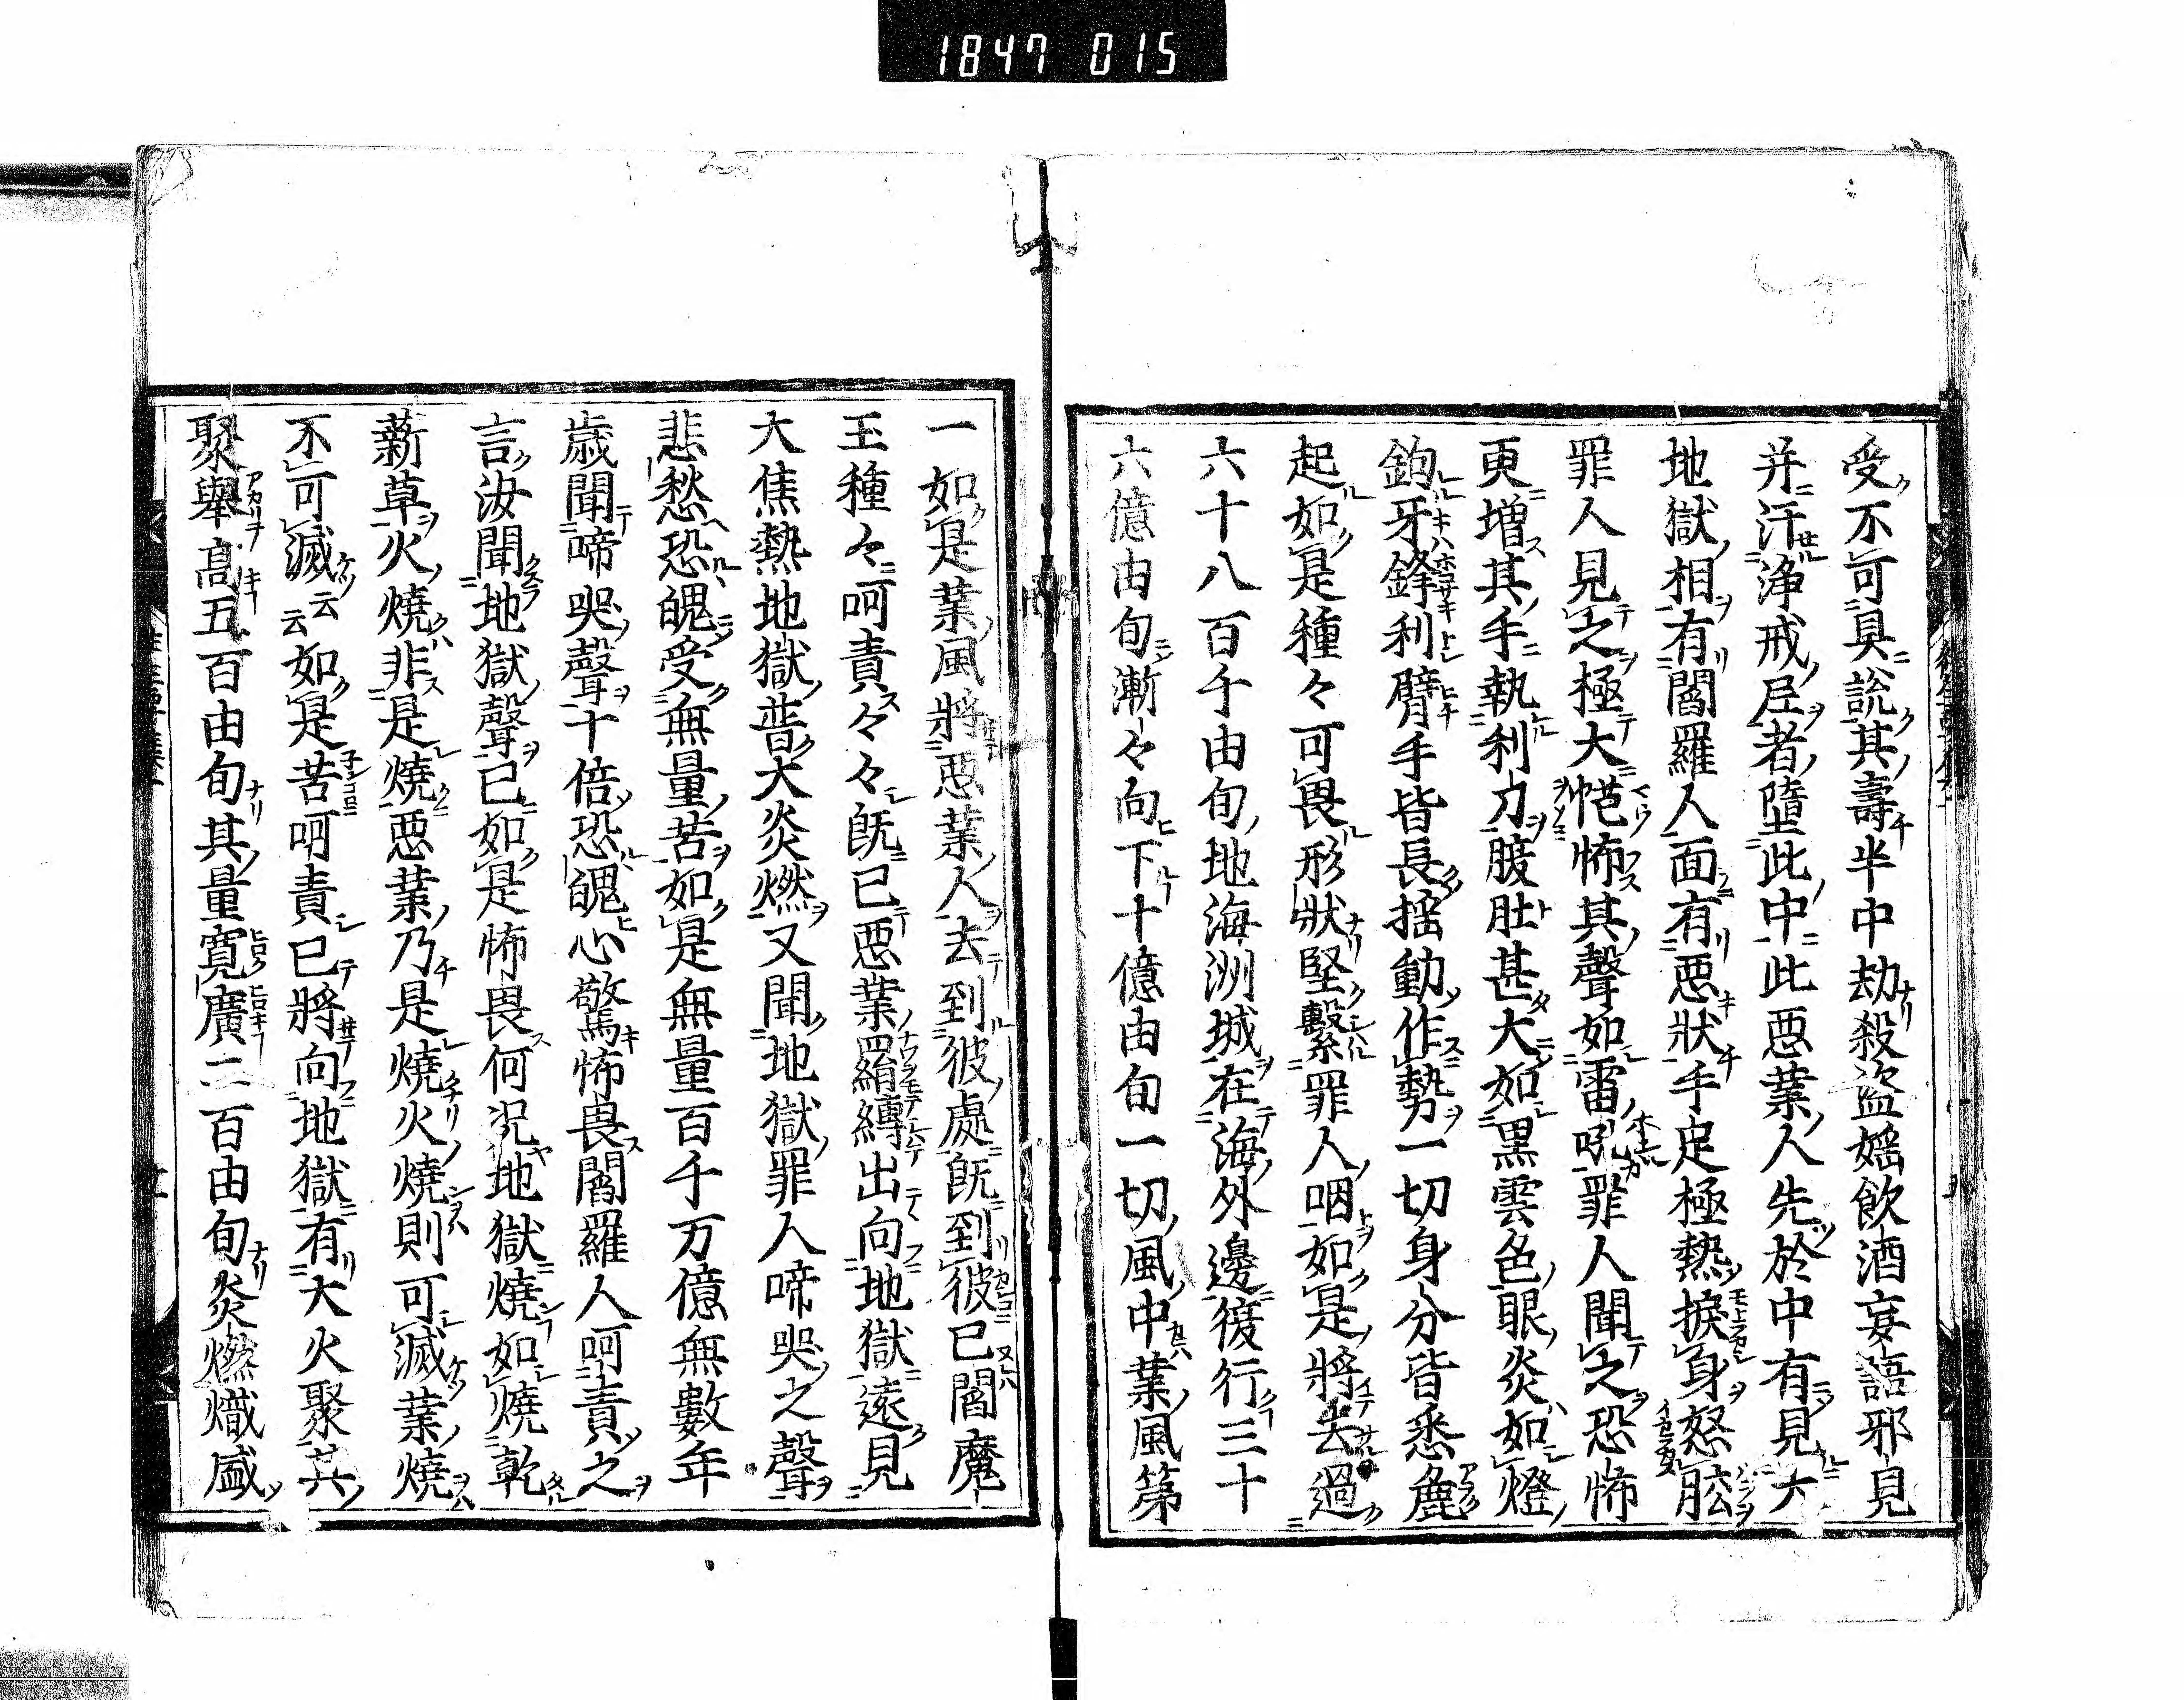 1847 015
受不可具說其壽半中劫殺盜婬飲酒妄語邪見
并汗淨戒尼者墮此中此惡業人先於中有見大
地獄相有閻羅人面有惡狀手足極熱捩身怒肱
罪人見之極大恾怖其聲如雷吼罪人聞之恐怖
更增其手執利刀腹肚甚大如黑雲色眼炎如燈
鉤牙鋒利臂手皆長搖動作勢一切身分皆悉麁
起如是種々可畏形狀堅繫罪人咽如是將去過
六十八百千由旬地海洲城在海外邊復行三十
六億由旬漸々向下十億由旬一切風中業風第
一如是業風將惡業人去到彼處既到彼已閻魔
王種々呵責々々既已惡業羂縛出向地獄遠見
大焦熱地獄普大炎燃又聞地獄罪人啼哭之聲
悲愁恐魄受無量苦如是無量百千万億無數年
歲聞啼哭聲十倍恐魄心驚怖畏閻羅人呵責之
言汝聞地獄聲已如是怖畏何況地獄燒如燒乾
薪草火燒非是燒惡業乃是燒火燒則可滅業燒
不可滅云云如是苦呵責已將向地獄有大火聚其
聚舉高五百由旬其量寬廣二百由旬炎燃熾盛